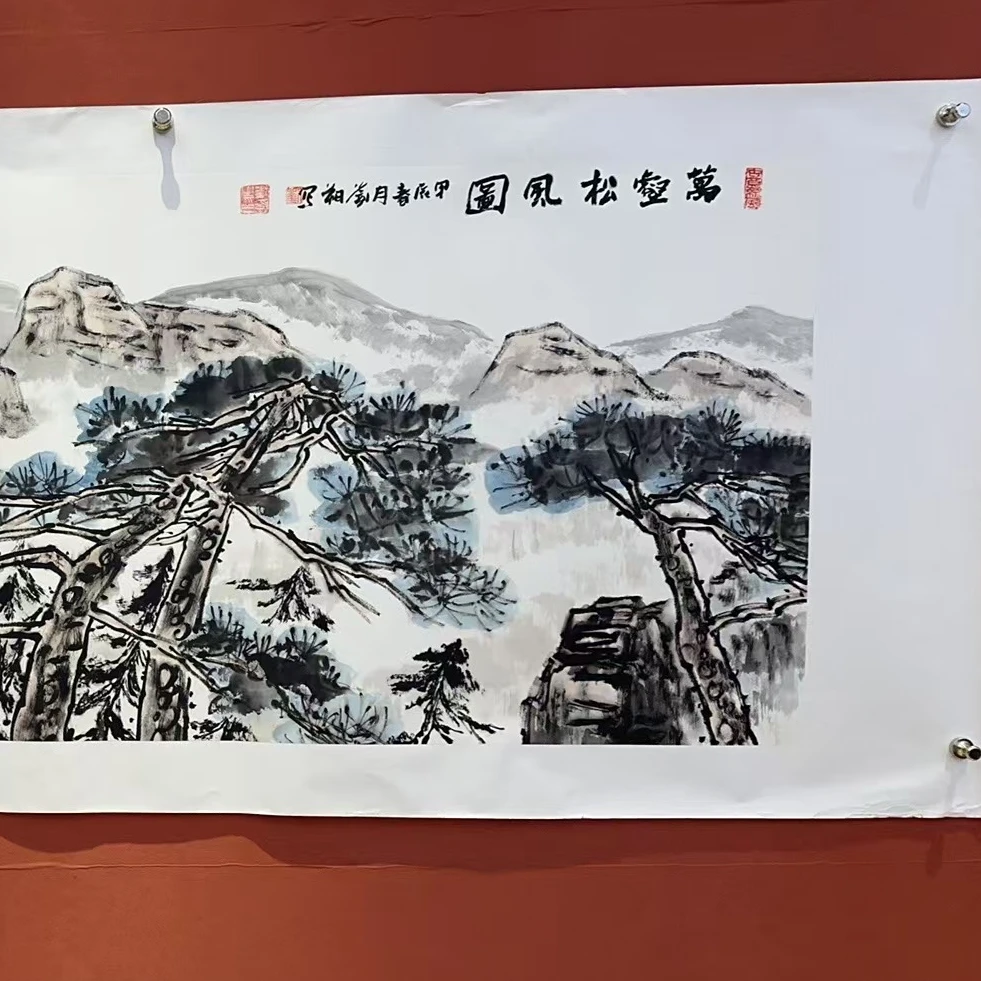 萬壑松風圖
甲辰春月